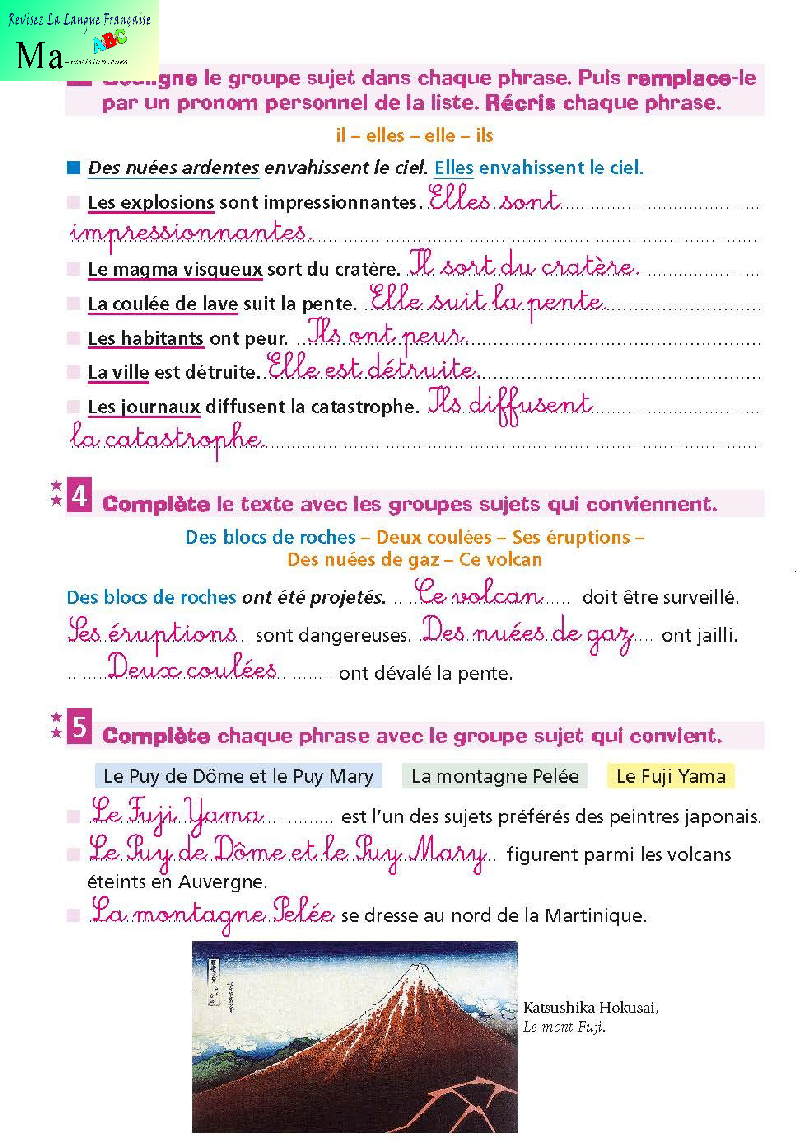 Revisez La Langue Française
ABC
Ma
Souligne le groupe sujet dans chaque phrase. Puis remplace-le
par un pronom personnel de la liste. Récris chaque phrase.
il – elles – elle – ils
Des nuées ardentes envahissent le ciel. Elles envahissent le ciel.
Les explosions sont impressionnantes. Elles sont
impressionnantes.
Le magma visqueux sort du cratère. Il sort du cratère.
La coulée de lave suit la pente. Elle suit la pente.
Les habitants ont peur. Ils ont peur.
La ville est détruite. Elle est détruite.
Les journaux diffusent la catastrophe. Ils diffusent
la catastrophe.
4 Complète le texte avec les groupes sujets qui conviennent.
Des blocs de roches – Deux coulées – Ses éruptions –
Des nuées de gaz – Ce volcan
Des blocs de roches ont été projetés. Ce volcan doit être surveillé.
Ses éruptions sont dangereuses. Des nuées de gaz ont jailli.
Deux coulées ont dévalé la pente.
5 Complète chaque phrase avec le groupe sujet qui convient.
Le Puy de Dôme et le Puy Mary La montagne Pelée Le Fuji Yama
Le Fuji Yama est l'un des sujets préférés des peintres japonais.
Le Puy de Dôme et le Puy Mary figurent parmi les volcans
éteints en Auvergne.
La montagne Pelée se dresse au nord de la Martinique.
Katsushika Hokusai,
Le mont Fuji.